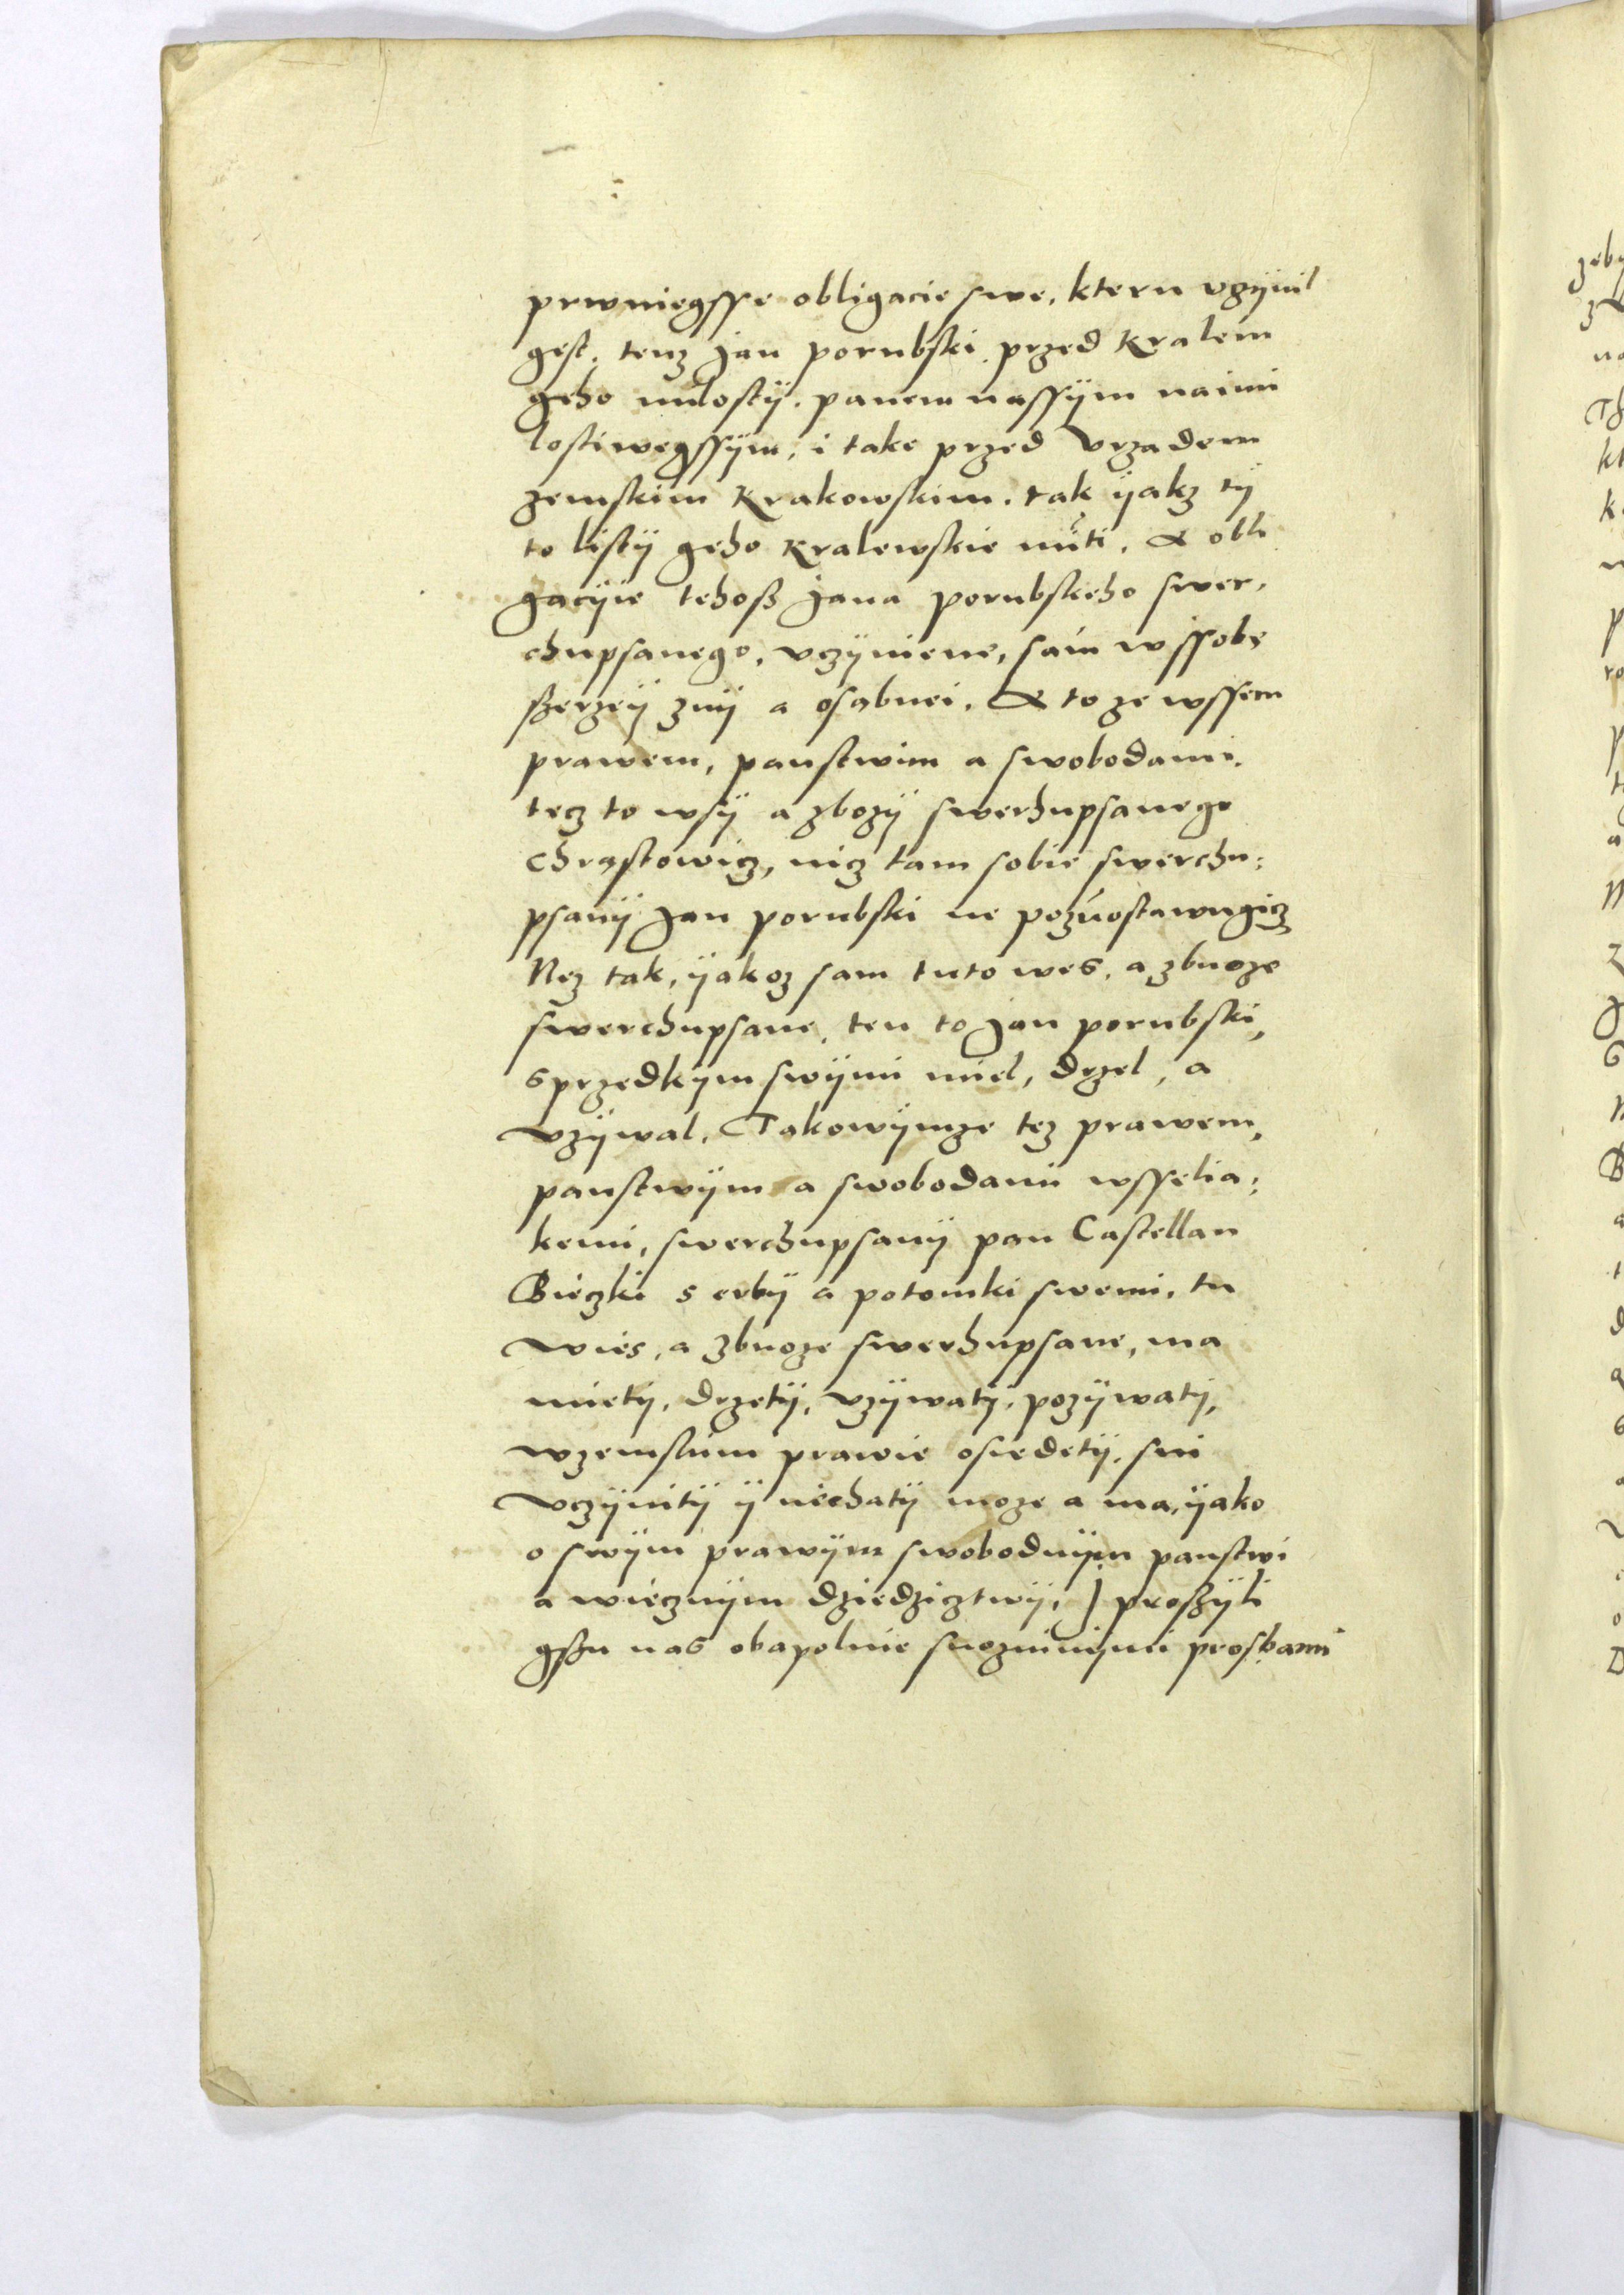 prwniegsse obligacie swe, kteru vczÿnil
gest, tenz Jan porubski przed Kralem
geho milostÿ, panem nassÿm naimi
lostiwegssÿm, i take przed Vrzadem
zemskim Krakowskim. tak ÿakz tÿ
to listÿ geho Kralewskie mti, & obli
gacÿie tehoß Jana porubskeho swer,
chupsanego, vczÿniene, sam w ssobe
sserzeÿ znÿ a osabnei. & to ze wssem
prawem, panstwim a swobodami.
tecz to wsÿ a zbozÿ swerhupsanego
Chrastowicz, nicz tam sobie swerchu:
psanÿ Jan porubski ne pozuostawugicz
Nez tak, ÿakoz sam tuto wes, a zbuoze
swerchupsane, ten to Jan porubski,
s przedkÿm swÿmi miel, drzel, a
vzÿwal. Takowÿmze tez prawem,
panstwÿm a swobodami wsselia:
kemi, swerchupsanÿ pan Castellan
Bieczki s erbÿ a potomki swemi, tu
wies, a zbuoze swerhupsane, ma
mietÿ, drzetÿ, vzÿwatÿ, pozÿwatÿ,
w zemskim prawie osiedetÿ, sni
vczÿnitÿ ÿ niechatÿ moze a ma, ÿako
o swÿm prawÿm swobodnÿm panstwi
a wiecznÿm dziedzicztwÿ, J proszÿli
gszu nas obapolnie snoznimÿmi prosbami